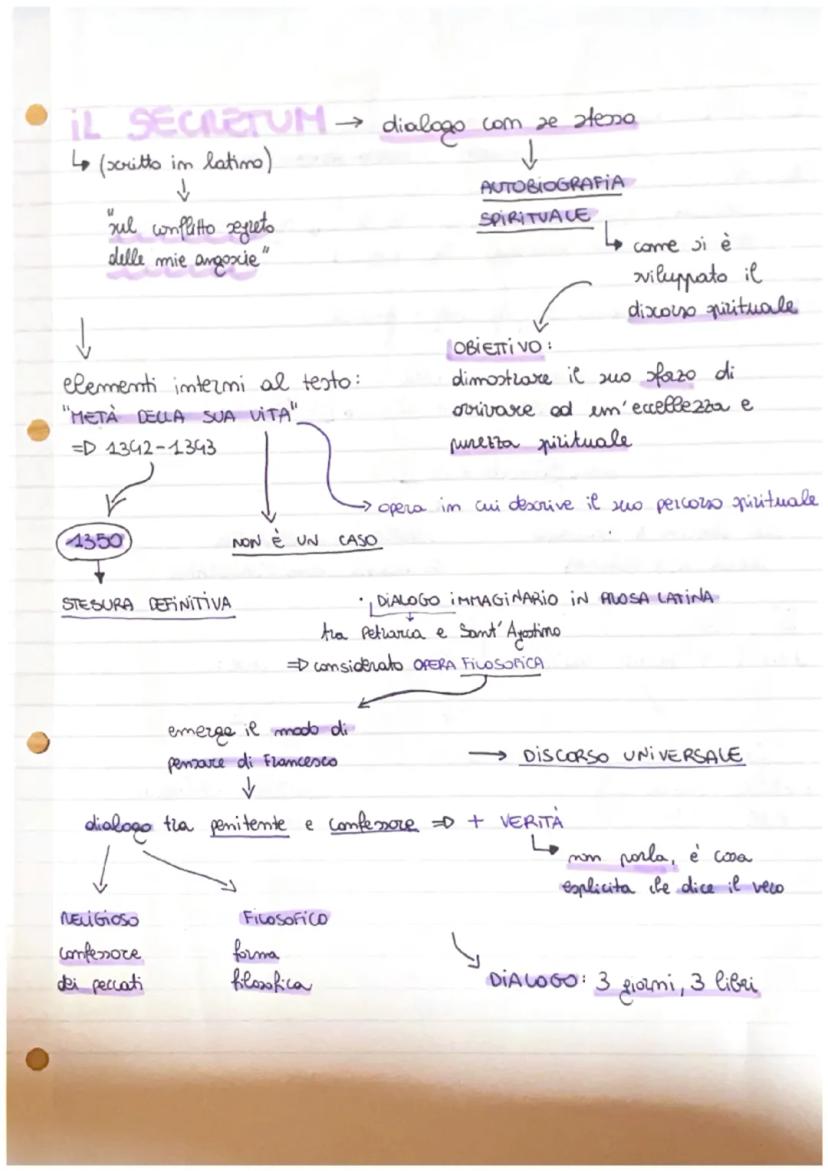 IL SECRETUM → dialogo con se stesso
↳ (scritto in latino)
"sul conflitto segreto
delle mie angoscie"
AUTOBIOGRAFIA
SPIRITUALE
↳ come si è
sviluppato il
discorso spirituale
OBIETTIVO:
dimostrare il suo sfozo di
arrivare ad un'eccellezza e
purezza spirituale
elementi interni al testo:
"METÀ DELLA SUA VITA"
=D 1342-1343
→ opera in cui descrive il suo percorso spirituale
1350
NON È UN CASO
STESURA DEFINITIVA
· DIALOGO IMMAGINARIO IN PROSA LATINA
tra Petrarca e Sant'Agostino
⇒ considerato OPERA FILOSOFICA
emerge il modo di
pensare di Francesco
→ DISCORSO UNIVERSALE
dialogo tra penitente e confessore =D + VERITÀ
↳ non parla, è cosa
esplicita che dice il vero
RELIGIOSO
confessore
dei peccati
FILOSOFICO
forma
filosofica
DIALOGO: 3 giorni, 3 libri